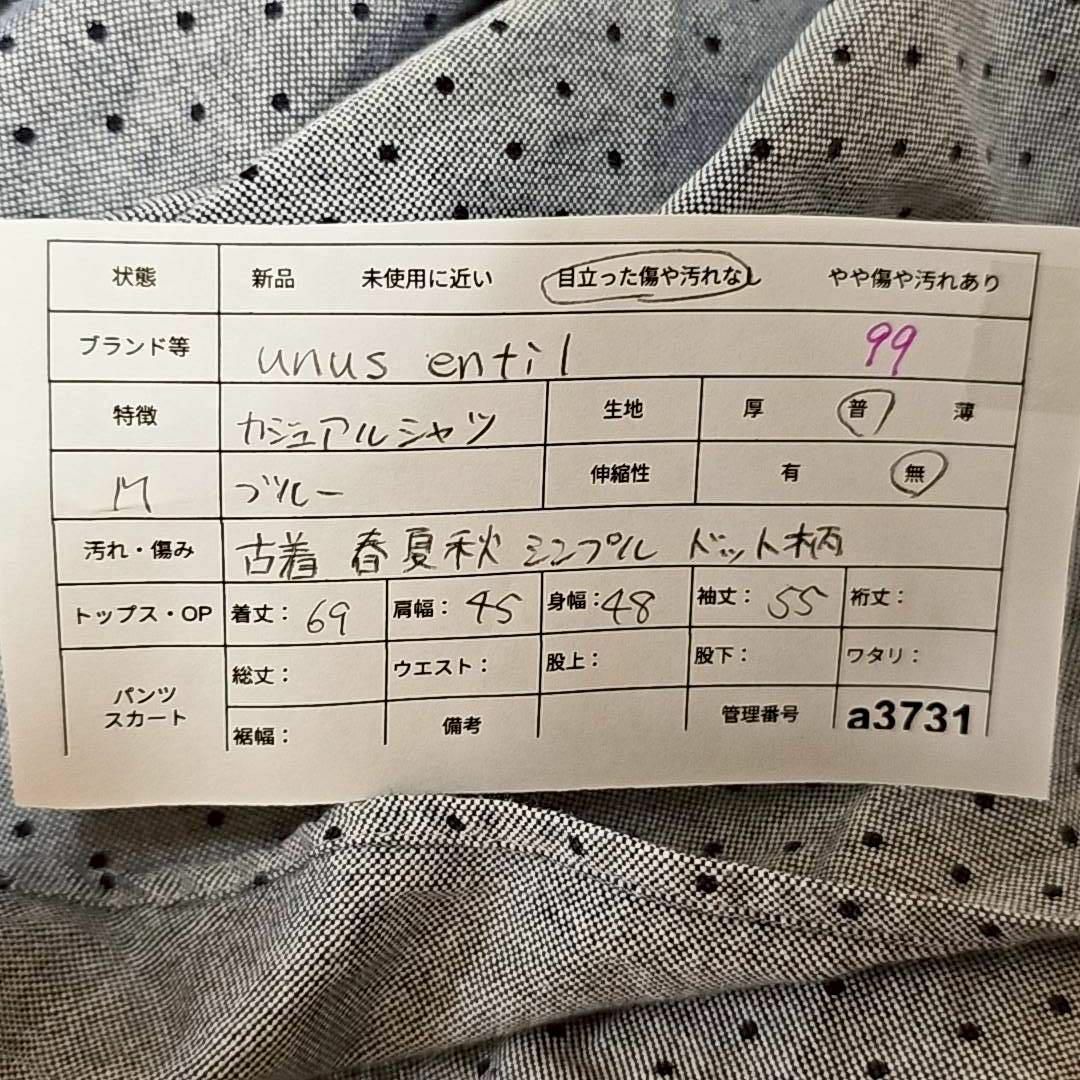 状態 新品 未使用に近い 目立った傷や汚れなし やや傷や汚れあり
ブランド等 unus entil 99
特徴 カジュアルシャツ 生地 厚 普 薄
M ブルー 伸縮性 有 無
汚れ・傷み 古着 春夏秋 シンプル ドット柄
トップス・OP 着丈: 69 肩幅: 45 身幅: 48 袖丈: 55 裄丈:
パンツ スカート 総丈: ウエスト: 股上: 股下: ワタリ:
裾幅: 備考 管理番号 a3731